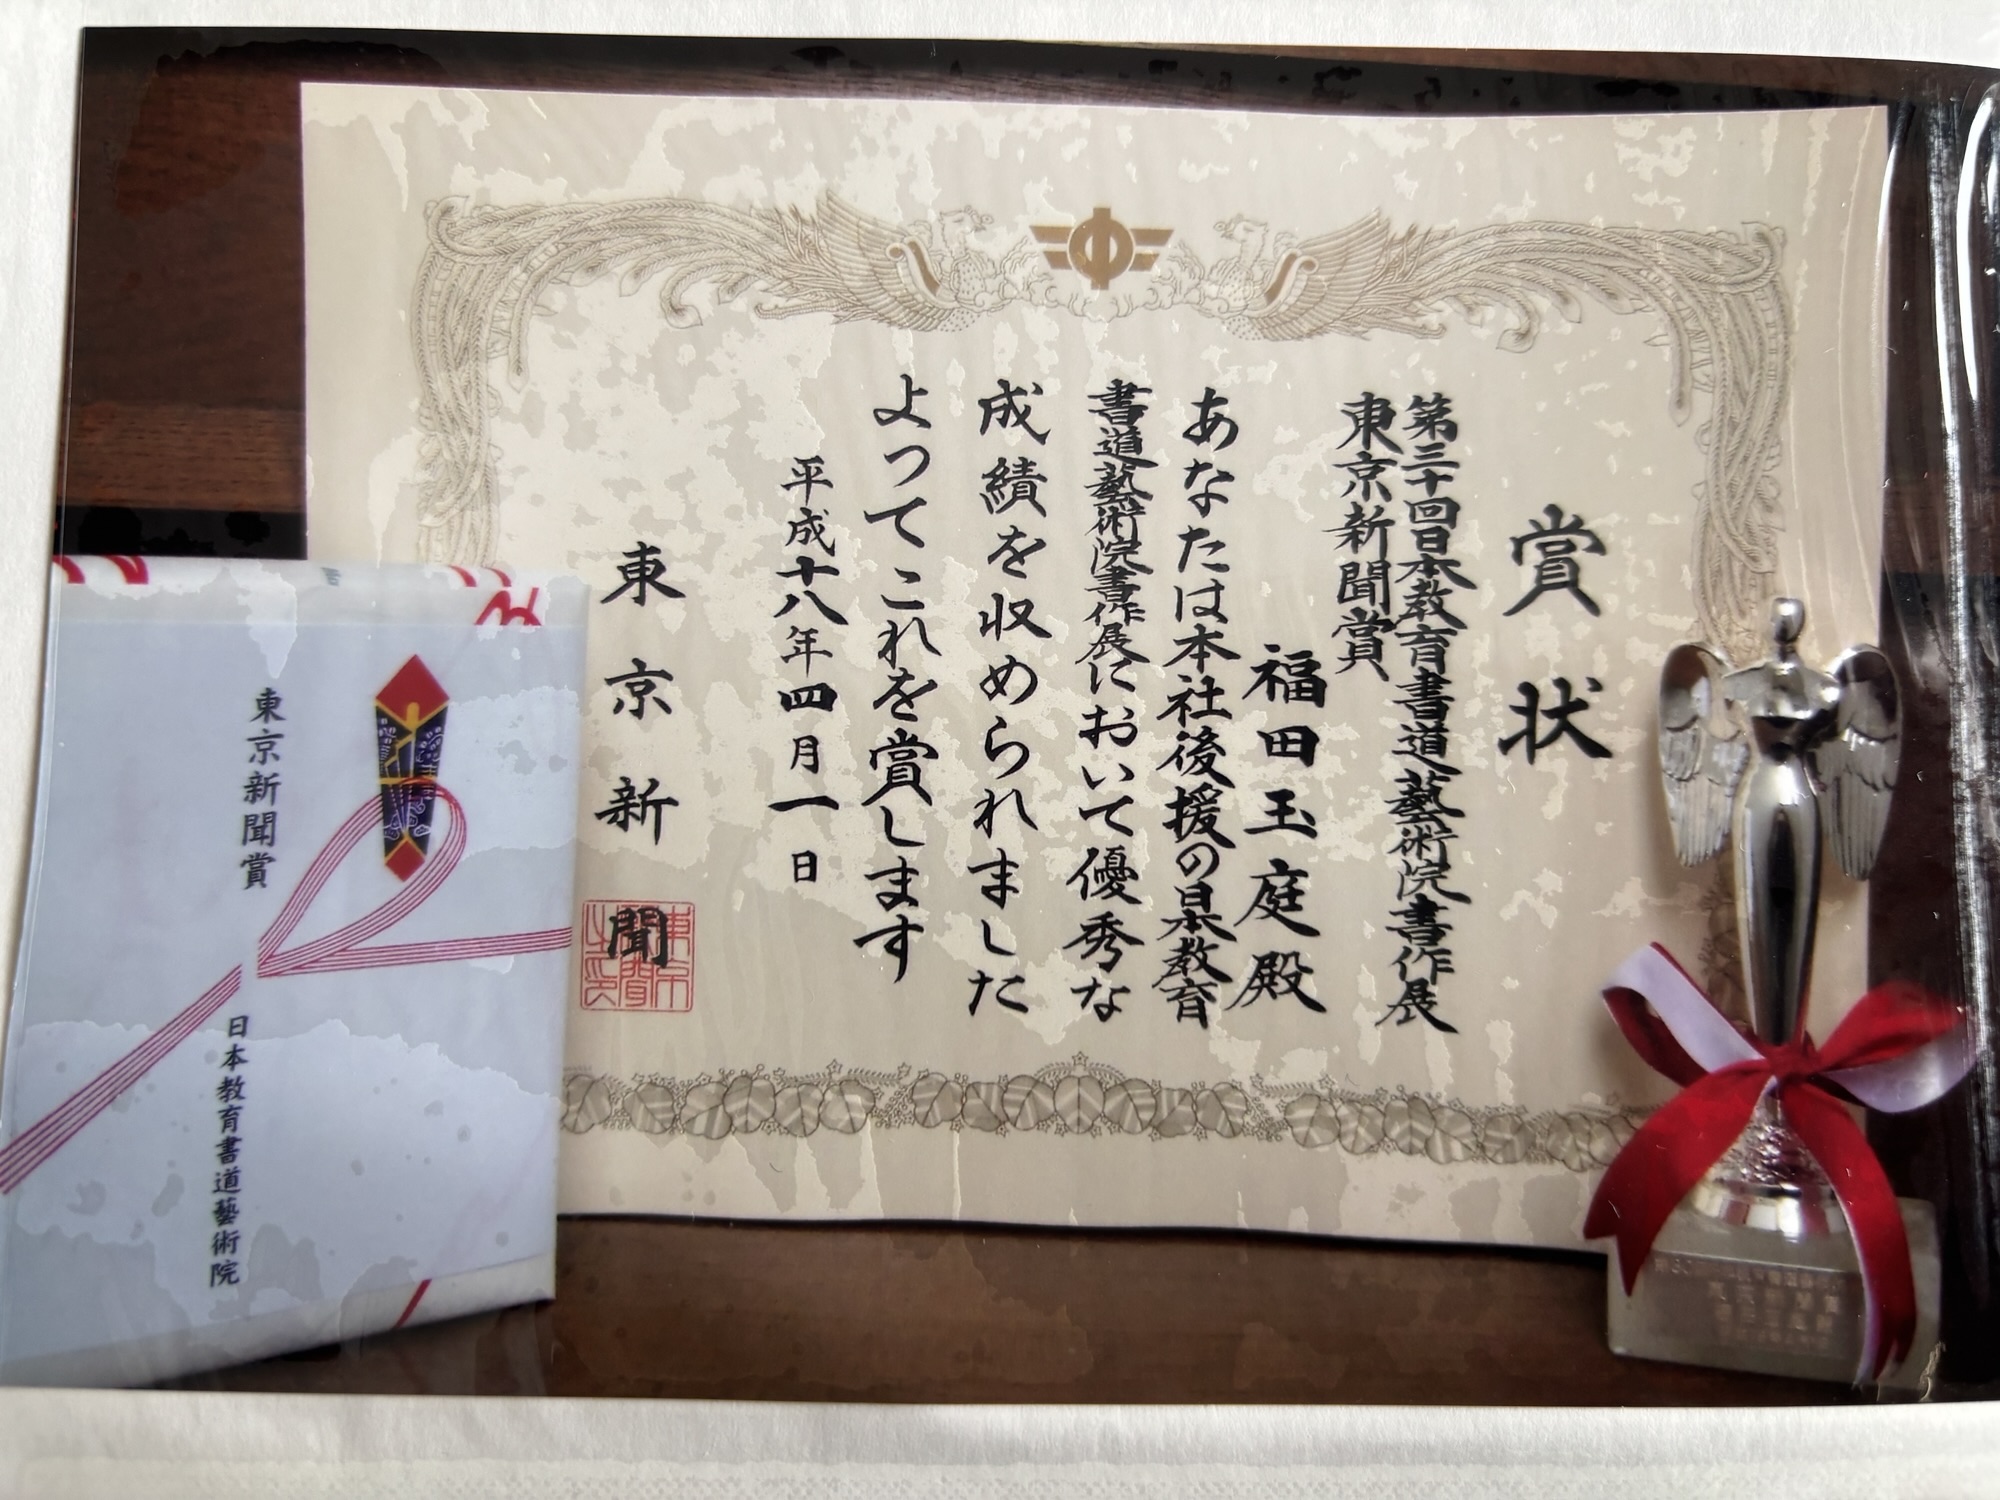 賞状
第三十回日本教育書道藝術院書作展
東京新聞賞
福田玉庭殿
あなたは本社後援の日本教育
書道藝術院書作展において優秀な
成績を収められました
よってこれを賞します
平成十八年四月一日
東京新聞
東京新聞賞
日本教育書道藝術院